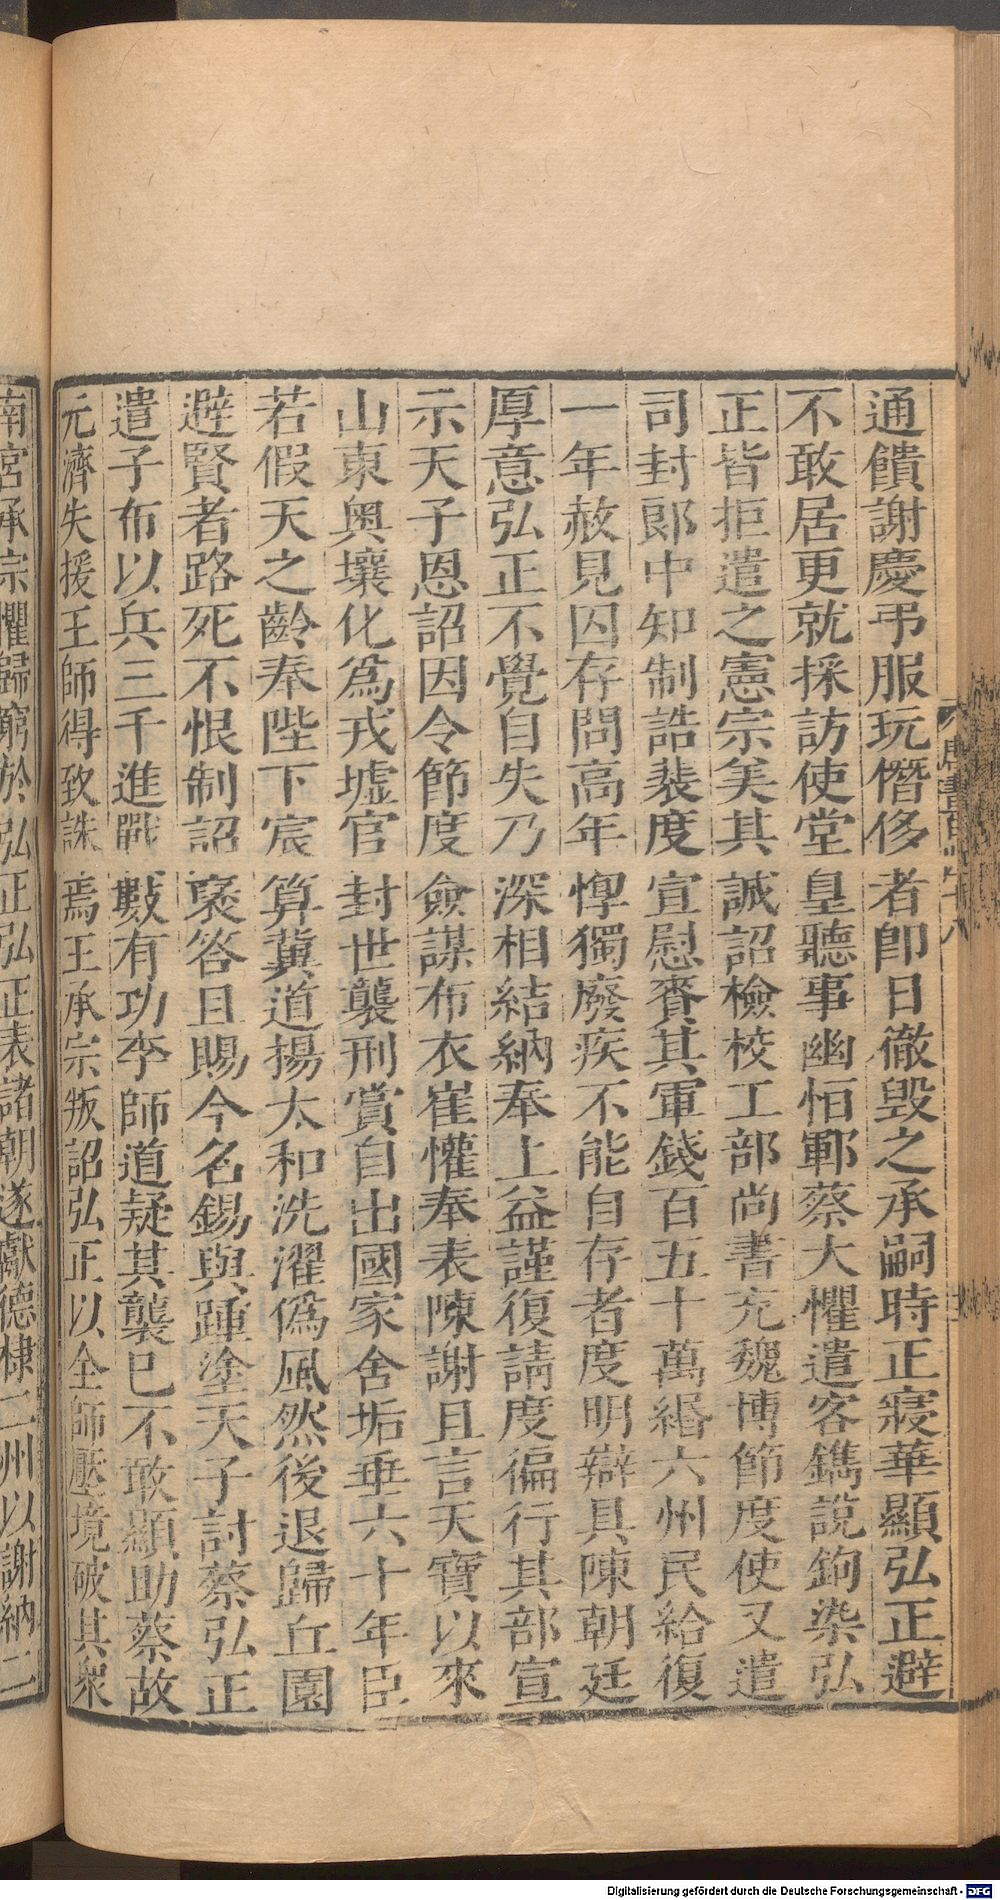 通饋謝慶弔服玩僭侈者卽日徹毁之承嗣時正寢華顯弘正避
不敢居更就採訪使堂皇聽事幽恒鄆蔡大懼遣客鐫說鉤染弘
正皆拒遣之憲宗美其誠詔檢校工部尚書充魏博節度使又遣
司封郎中知制誥裴度宣慰賚其軍錢百五十萬緡六州民給復
一年赦見囚存問高年惸獨廢疾不能自存者度明辯具陳朝廷
厚意弘正不覺自失乃深相結納奉上益謹復請度徧行其部宣
示天子恩詔因令節度僉謀布衣崔懽奉表陳謝且言天寶以來
山東奧壤化爲戎墟官封世襲刑賞自出國家舍垢垂六十年臣
若假天之齡奉陛下宸算冀道揚太和洗濯僞風然後退歸丘園
避賢者路死不恨制詔褒答且賜今名錫與踵塗天子討蔡弘正
遣子布以兵三千進戰數有功李師道疑其襲已不敢顯助蔡故
元濟失援王師得致誅焉王承宗叛詔弘正以全師壓境破其衆
南宮承宗懼歸窮於弘正弘正表諸朝遂獻德棣二州以謝納二
Digitalisierung gefördert durch die Deutsche Forschungsgemeinschaft - DFG